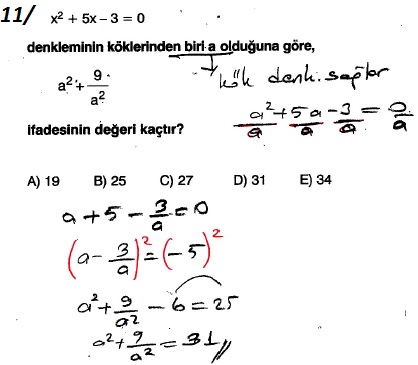 11/ x² + 5x – 3 = 0
denkleminin köklerinden biri a olduğuna göre,
a² + 9/a²
kök denk. sağlar
a²/a + 5a/a - 3/a = 0/a
ifadesinin değeri kaçtır?
A) 19 B) 25 C) 27 D) 31 E) 34
a + 5 - 3/a = 0
(a - 3/a)² = (-5)²
a² + 9/a² - 6 = 25
a² + 9/a² = 31//